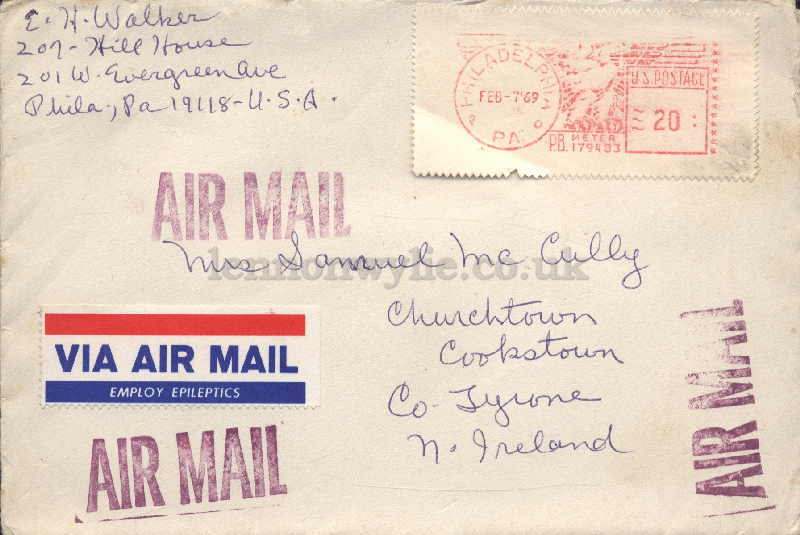 E. H. Walker
207- Hill House
201 W. Evergreen Ave
Phila., Pa 19118-U.S.A.
PHILADELPHIA
FEB-7'69
PA.
U.S. POSTAGE
20
P.B. METER
179483
AIR MAIL
Mrs Samuel Mc Cully
lennonwylie.co.uk
Churchtown
Cookstown
Co. Tyrone
N. Ireland
VIA AIR MAIL
EMPLOY EPILEPTICS
AIR MAIL
AIR MAIL